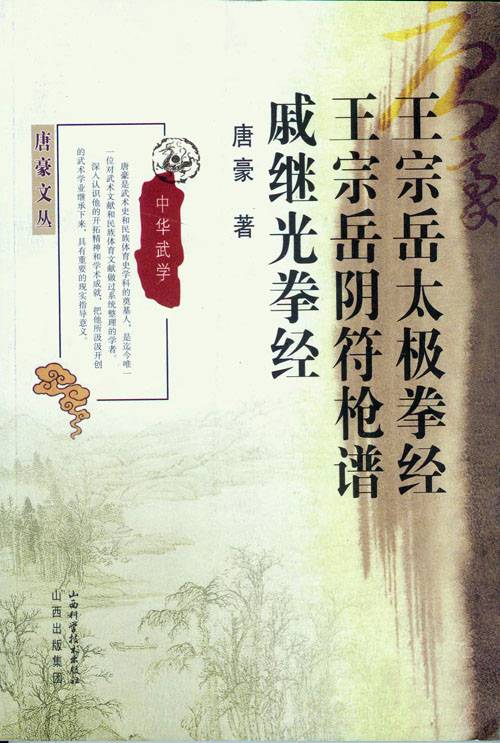 唐豪
王宗岳太极拳经
王宗岳阴符枪谱
戚继光拳经
唐豪 著
中华武学
唐豪是武术史和民族体育史学科的奠基人，是迄今唯一
一位对武术文献和民族体育文献做过系统整理的学者。
深入认识他的开拓精神和学术成就，把他所汲汲开创
的武术学业继承下来，具有重要的现实指导意义。
唐豪文丛
山西科学技术出版社
山西出版集团